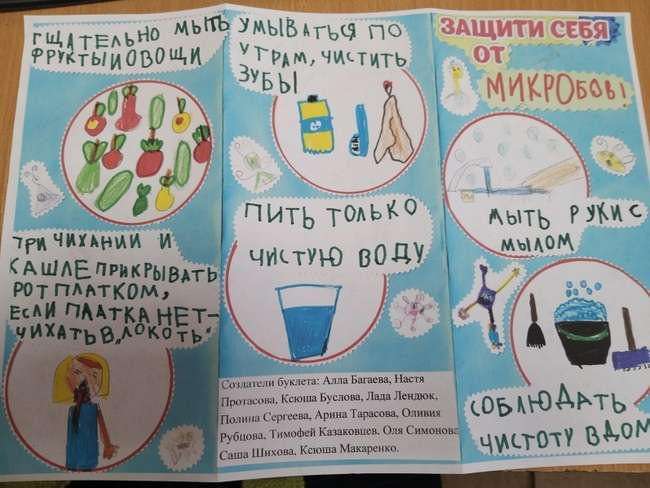 ТЩАТЕЛЬНО МЫТЬ
ФРУКТЫ И ОВОЩИ
ПРИ ЧИХАНИИ И
КАШЛЕ ПРИКРЫВАТЬ
РОТ ПЛАТКОМ,
ЕСЛИ ПЛАТКА НЕТ-
ЧИХАТЬ В „ЛОКОТЬ"
УМЫВАТЬСЯ ПО
УТРАМ, ЧИСТИТЬ
ЗУБЫ
ПИТЬ ТОЛЬКО
ЧИСТУЮ ВОДУ
Создатели буклета: Алла Багаева, Настя
Протасова, Ксюша Буслова, Лада Лендюк,
Полина Сергеева, Арина Тарасова, Оливия
Рубцова, Тимофей Казаковцев, Оля Симонова
Саша Шихова, Ксюша Макаренко.
ЗАЩИТИ СЕБЯ
ОТ
МИКРОБОВ!
МЫТЬ РУКИ С
МЫЛОМ
СОБЛЮДАТЬ
ЧИСТОТУ В ДОМ